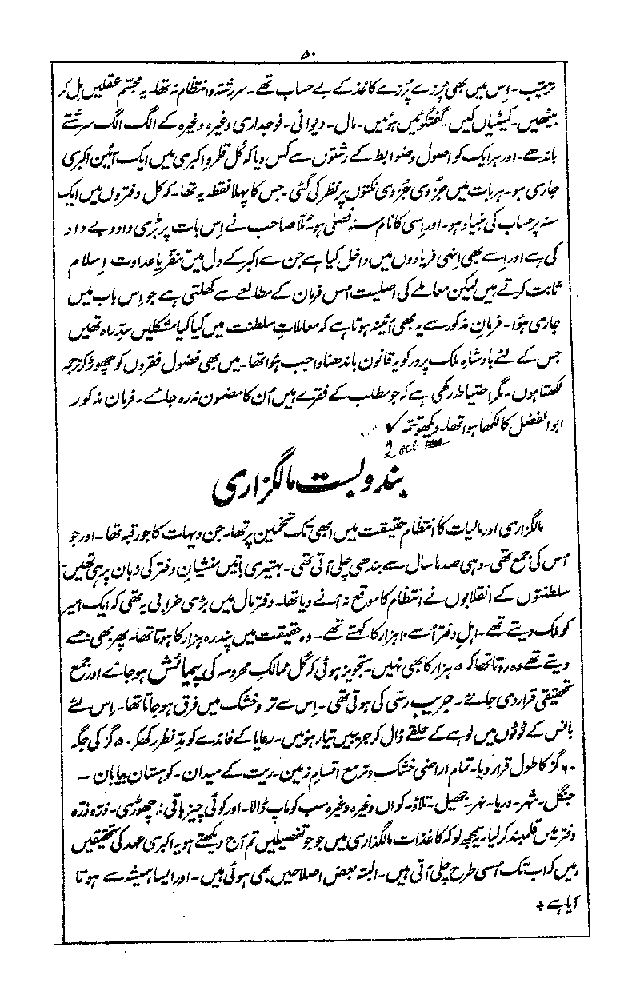 ۵۰
ترتیب۔ اِس میں بھی پُرزے پُرزے کاغذ کے بے حساب تھے۔ سررشتہ و انتظام نہ تھا۔ یہ مجسّم عقلیں مِل کر
بیٹھیں۔ کمیٹیاں کیں۔ گفتگوئیں ہوئیں۔ مال۔ دیوانی۔ فوجداری وغیرہ وغیرہ کے الگ الگ سرشتے
باندھے۔ اور ہر ایک کو اصول و ضوابط کے رشتوں سے کس دیا کہ کُل قلمرو اکبری میں ایک آئین اکبری
جاری ہو۔ ہر بات میں جزوی جزوی نکتوں پر نظر کی گئی۔ جس کا پہلا نقطہ یہ تھا۔ کہ کل دفتروں میں ایک
سنہ پر حساب کی بنیاد ہو۔ اور اِسی کا نام سنہ فصلی ہو۔ مُلّا صاحب نے اِس بات پر بڑی داد و بے داد
کی ہے اور اِسے بھی اپنی فریادوں میں داخل کیا ہے جن سے اکبر کے دل میں تنفّر یا عداوت اِسلام
ثابت کرتے ہیں لیکن معاملے کی اصلیت اُس فرمان کے مطالعے سے کھلتی ہے جو اِس باب میں
جاری ہوا۔ فرمان مذکور سے یہ بھی آئینہ ہوتا ہے کہ معاملاتِ سلطنت میں کیا کیا مشکلیں سدّ راہ تھیں
جس کے لئے بادشاہ ملک پرور کو یہ قانون باندھنا واجب ہوا تھا۔ میں بھی فضول فقروں کو چھوڑ کر ترجمہ
لکھتا ہوں۔ مگر احتیاط رکھی ہے کہ جو مطلب کے فقرے ہیں اُن کا مضمون نہ رہ جائے۔ فرمان مذکور
ابوالفضل کا لکھا ہوا تھا۔ دیکھو تتمہ
بندوبست مالگزاری
مالگزاری اور مالیات کا انتظام حقیقت میں ابھی تک تخمین پر تھا۔ جن دیہات کا جو رقبہ تھا۔ اور جو
اُس کی جمع تھی۔ وہی صدہا سال سے بندھی چلی آتی تھی۔ بہتیری باتیں منشیان دفتر کی زبان پر ہی تھیں
سلطنتوں کے انقلابوں نے انتظام کا موقع نہ آنے دیا تھا۔ دفترِ مال میں بڑی خرابی یہ تھی کہ ایک امیر
کو ملک دیتے تھے۔ اہلِ دفتر اُسے ۱۰ ہزار کا کہتے تھے۔ وہ حقیقت میں پندرہ ہزار کا ہوتا تھا۔ پھر بھی جسے
دیتے تھے وہ روتا تھا کہ ۵ ہزار کا بھی نہیں۔ تجویز ہوئی کہ کُل ممالک محروسہ کی پیمائش ہو جائے اور جمع
تحقیقی قرار دی جائے۔ جریب رسّی کی ہوتی تھی۔ اِس سے تر و خشک میں فرق ہو جاتا تھا۔ اِس لئے
بانس کے ٹوٹوں میں لوہے کے حلقے ڈال کر جریبیں تیار ہوئیں۔ رعایا کے فائدے کو مدِّ نظر رکھ کر۔ ۵۰ گز کی جگہ
۶۰ گز کا طول قرار دیا۔ تمام اراضی خشک و تر مع اقسام زمین۔ ریت کے میدان۔ کوہستان۔ بیابان۔
جنگل۔ شہر۔ دریا۔ نہر۔ جھیل۔ تلاؤ۔ کواں وغیرہ وغیرہ سب کو ماپ ڈالا۔ اور کوئی چیز باقی نہ چھوڑی۔ ذرہ ذرہ
دفتر میں قلمبند کر لیا۔ سمجھ لو کہ کاغذات مالگزاری میں جو جو تفصیلیں تم آج دیکھتے ہو۔ یہ اکبری عہد کی تحقیقیں
ہیں کہ اب تک اُسی طرح چلی آتی ہیں۔ البتہ بعض اصلاحیں بھی ہوئی ہیں۔ اور ایسا ہمیشہ سے ہوتا
آیا ہے ٭